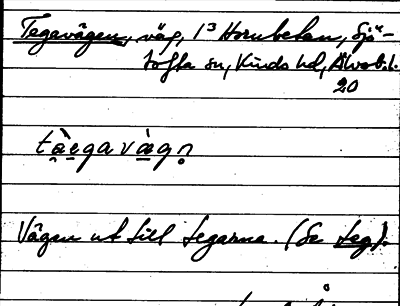 Tegavägen, väg, 1³ Hornbetan, Sjö-
tofta sn, Kinds hd, Älvsb. l.
20
tàegavàgn
Vägen ut till tegarna. (Se teg).